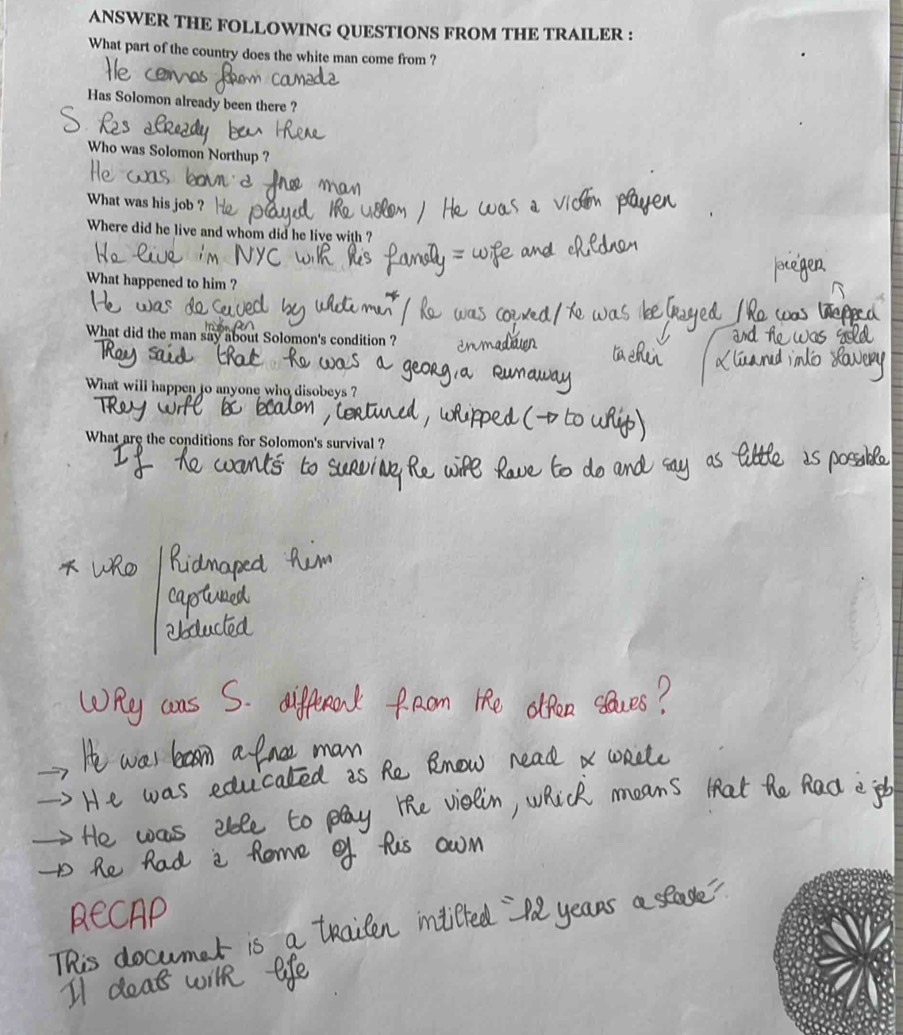 ANSWER THE FOLLOWING QUESTIONS FROM THE TRAILER :
What part of the country does the white man come from ?
He comes from canada
Has Solomon already been there ?
S. has already ben there
Who was Solomon Northup ?
He was born a free man
What was his job ? He played the violon / He was a violin player
Where did he live and whom did he live with ?
He live in NYC with his family = wife and children
piéger
What happened to him ?
He was deceived by white men* / he was coaxed / he was betrayed / he was trapped
and he was sold
What did the man say about Solomon's condition ?
trahir
& turned into slavery
They said that he was a georgia runaway
What will happen to anyone who disobeys ?
They will be beaten, tortured, whipped (→ to whip)
What are the conditions for Solomon's survival ?
If he wants to survive, he will have to do and say as little as possible
* who kidnaped him
captured
abducted
Why was S. different from the other slaves?
→ He was born a free man
→ He was educated as he know read & write
→ He was able to play the violin, which means that he had a job
→ he had a home of his own
RECAP
This documet is a trailer intilted "12 years a slave".
It deals with life